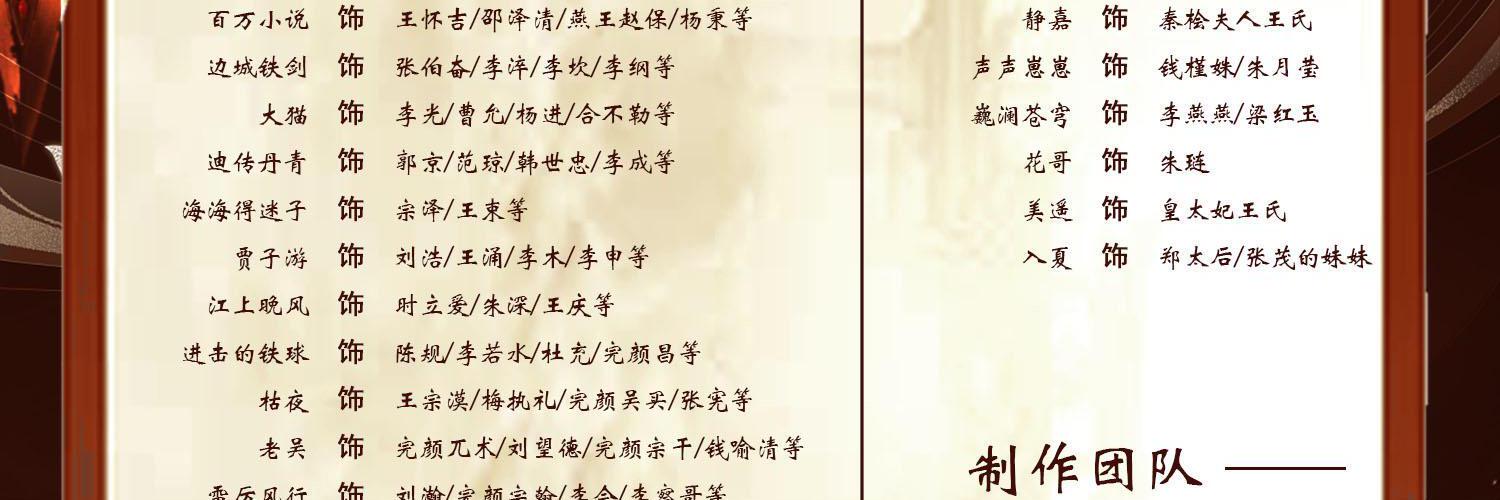 百万小说 饰 王怀吉/邵泽清/燕王赵保/杨秉等
边城铁剑 饰 张伯奋/李淬/李坎/李纲等
大猫 饰 李光/曹允/杨进/合不勒等
迪传丹青 饰 郭京/范琼/韩世忠/李成等
海海得迷子 饰 宗泽/王束等
贾子游 饰 刘浩/王涌/李木/李申等
江上晚风 饰 时立爱/朱深/王庆等
进击的铁球 饰 陈规/李若水/杜充/完颜昌等
枯夜 饰 王宗濋/梅执礼/完颜吴买/张宪等
老吴 饰 完颜兀术/刘望德/完颜宗干/钱喻清等
雪厉风行 饰 刘瀚/完颜宗翰/李会/李察哥等
静嘉 饰 秦桧夫人王氏
声声崽崽 饰 钱槿姝/朱月莹
巍澜苍穹 饰 李燕燕/梁红玉
花哥 饰 朱琏
美遥 饰 皇太妃王氏
入夏 饰 郑太后/张茂的妹妹
制作团队